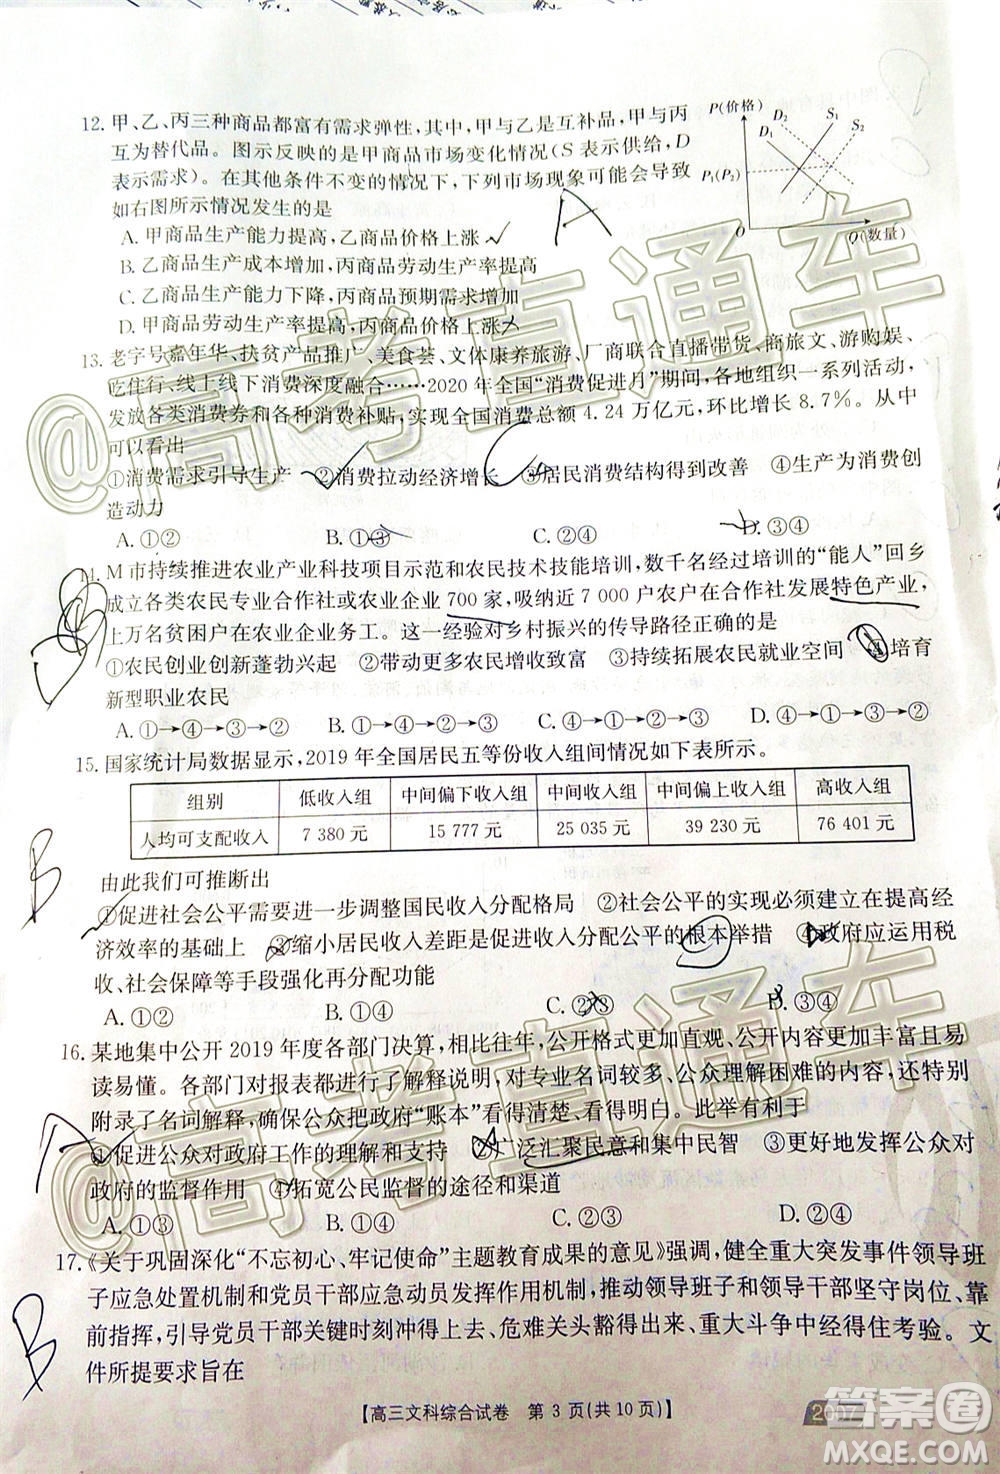 12. 甲、乙、丙三种商品都富有需求弹性,其中,甲与乙是互补品,甲与丙
互为替代品。图示反映的是甲商品市场变化情况(S 表示供给,D
表示需求)。在其他条件不变的情况下,下列市场现象可能会引
如右图所示情况发生的是
P(价格)
S₁
S₂
D₂
D₁
P₁(P₂)
O
Q(数量)
A. 甲商品生产能力提高,乙商品价格上涨
B. 乙商品生产成本增加,丙商品劳动生产率提高
C. 乙商品生产能力下降,丙商品预期需求增加
D. 甲商品劳动生产率提高,丙商品价格上涨
13. 老字号嘉年华、扶贫产品推广、美食荟、文体康养旅游、厂商联合直播带货、商旅文、游购娱、
吃住行、线上线下消费深度融合……2020 年全国“消费促进月”期间,各地组织一系列活动,
发放各类消费券和各种消费补贴,实现全国消费总额 4.24 万亿元,环比增长 8.7%。从中
可以看出
①消费需求引导生产 ②消费拉动经济增长 ③居民消费结构得到改善 ④生产为消费创
造动力
A. ①② B. ①③ C. ②④ D. ③④
14. M 市持续推进农业产业科技项目示范和农民技术技能培训,数千名经过培训的“能人”回乡
成立各类农民专业合作社或农业企业 700 家,吸纳近 7 000 户农户在合作社发展特色产业,
上万名贫困户在农业企业务工。这一经验对乡村振兴的传导路径正确的是
①农民创业创新蓬勃兴起 ②带动更多农民增收致富 ③持续拓展农民就业空间 ④培育
新型职业农民
A. ①→④→③→② B. ①→④→②→③ C. ④→①→③→② D. ④→①→②→③
15. 国家统计局数据显示,2019 年全国居民五等份收入组间情况如下表所示。
组别 低收入组 中间偏下收入组 中间收入组 中间偏上收入组 高收入组
人均可支配收入 7 380 元 15 777 元 25 035 元 39 230 元 76 401 元
B
由此我们可推断出
①促进社会公平需要进一步调整国民收入分配格局 ②社会公平的实现必须建立在提高经
济效率的基础上 ③缩小居民收入差距是促进收入分配公平的根本举措 ④政府应运用税
收、社会保障等手段强化再分配功能
A. ①② B. ①④ C. ②③ D. ③④
16. 某地集中公开 2019 年度各部门决算,相比往年,公开格式更加直观、公开内容更加丰富且易
读易懂。各部门对报表都进行了解释说明,对专业名词较多、公众理解困难的内容,还特别
附录了名词解释,确保公众把政府“账本”看得清楚、看得明白。此举有利于
A
①促进公众对政府工作的理解和支持 ②广泛汇聚民意和集中民智 ③更好地发挥公众对
政府的监督作用 ④拓宽公民监督的途径和渠道
A. ①③ B. ①④ C. ②③ D. ②④
17. 《关于巩固深化“不忘初心、牢记使命”主题教育成果的意见》强调,健全重大突发事件领导班
子应急处置机制和党员干部应急动员发挥作用机制,推动领导班子和领导干部坚守岗位、靠
前指挥,引导党员干部关键时刻冲得上去、危难关头豁得出来、重大斗争中经得住考验。文
件所提要求旨在
B
【高三文科综合试卷 第 3 页(共 10 页)】
2007
@高考直通车
@高考直通车
答案圈
MXQE.COM